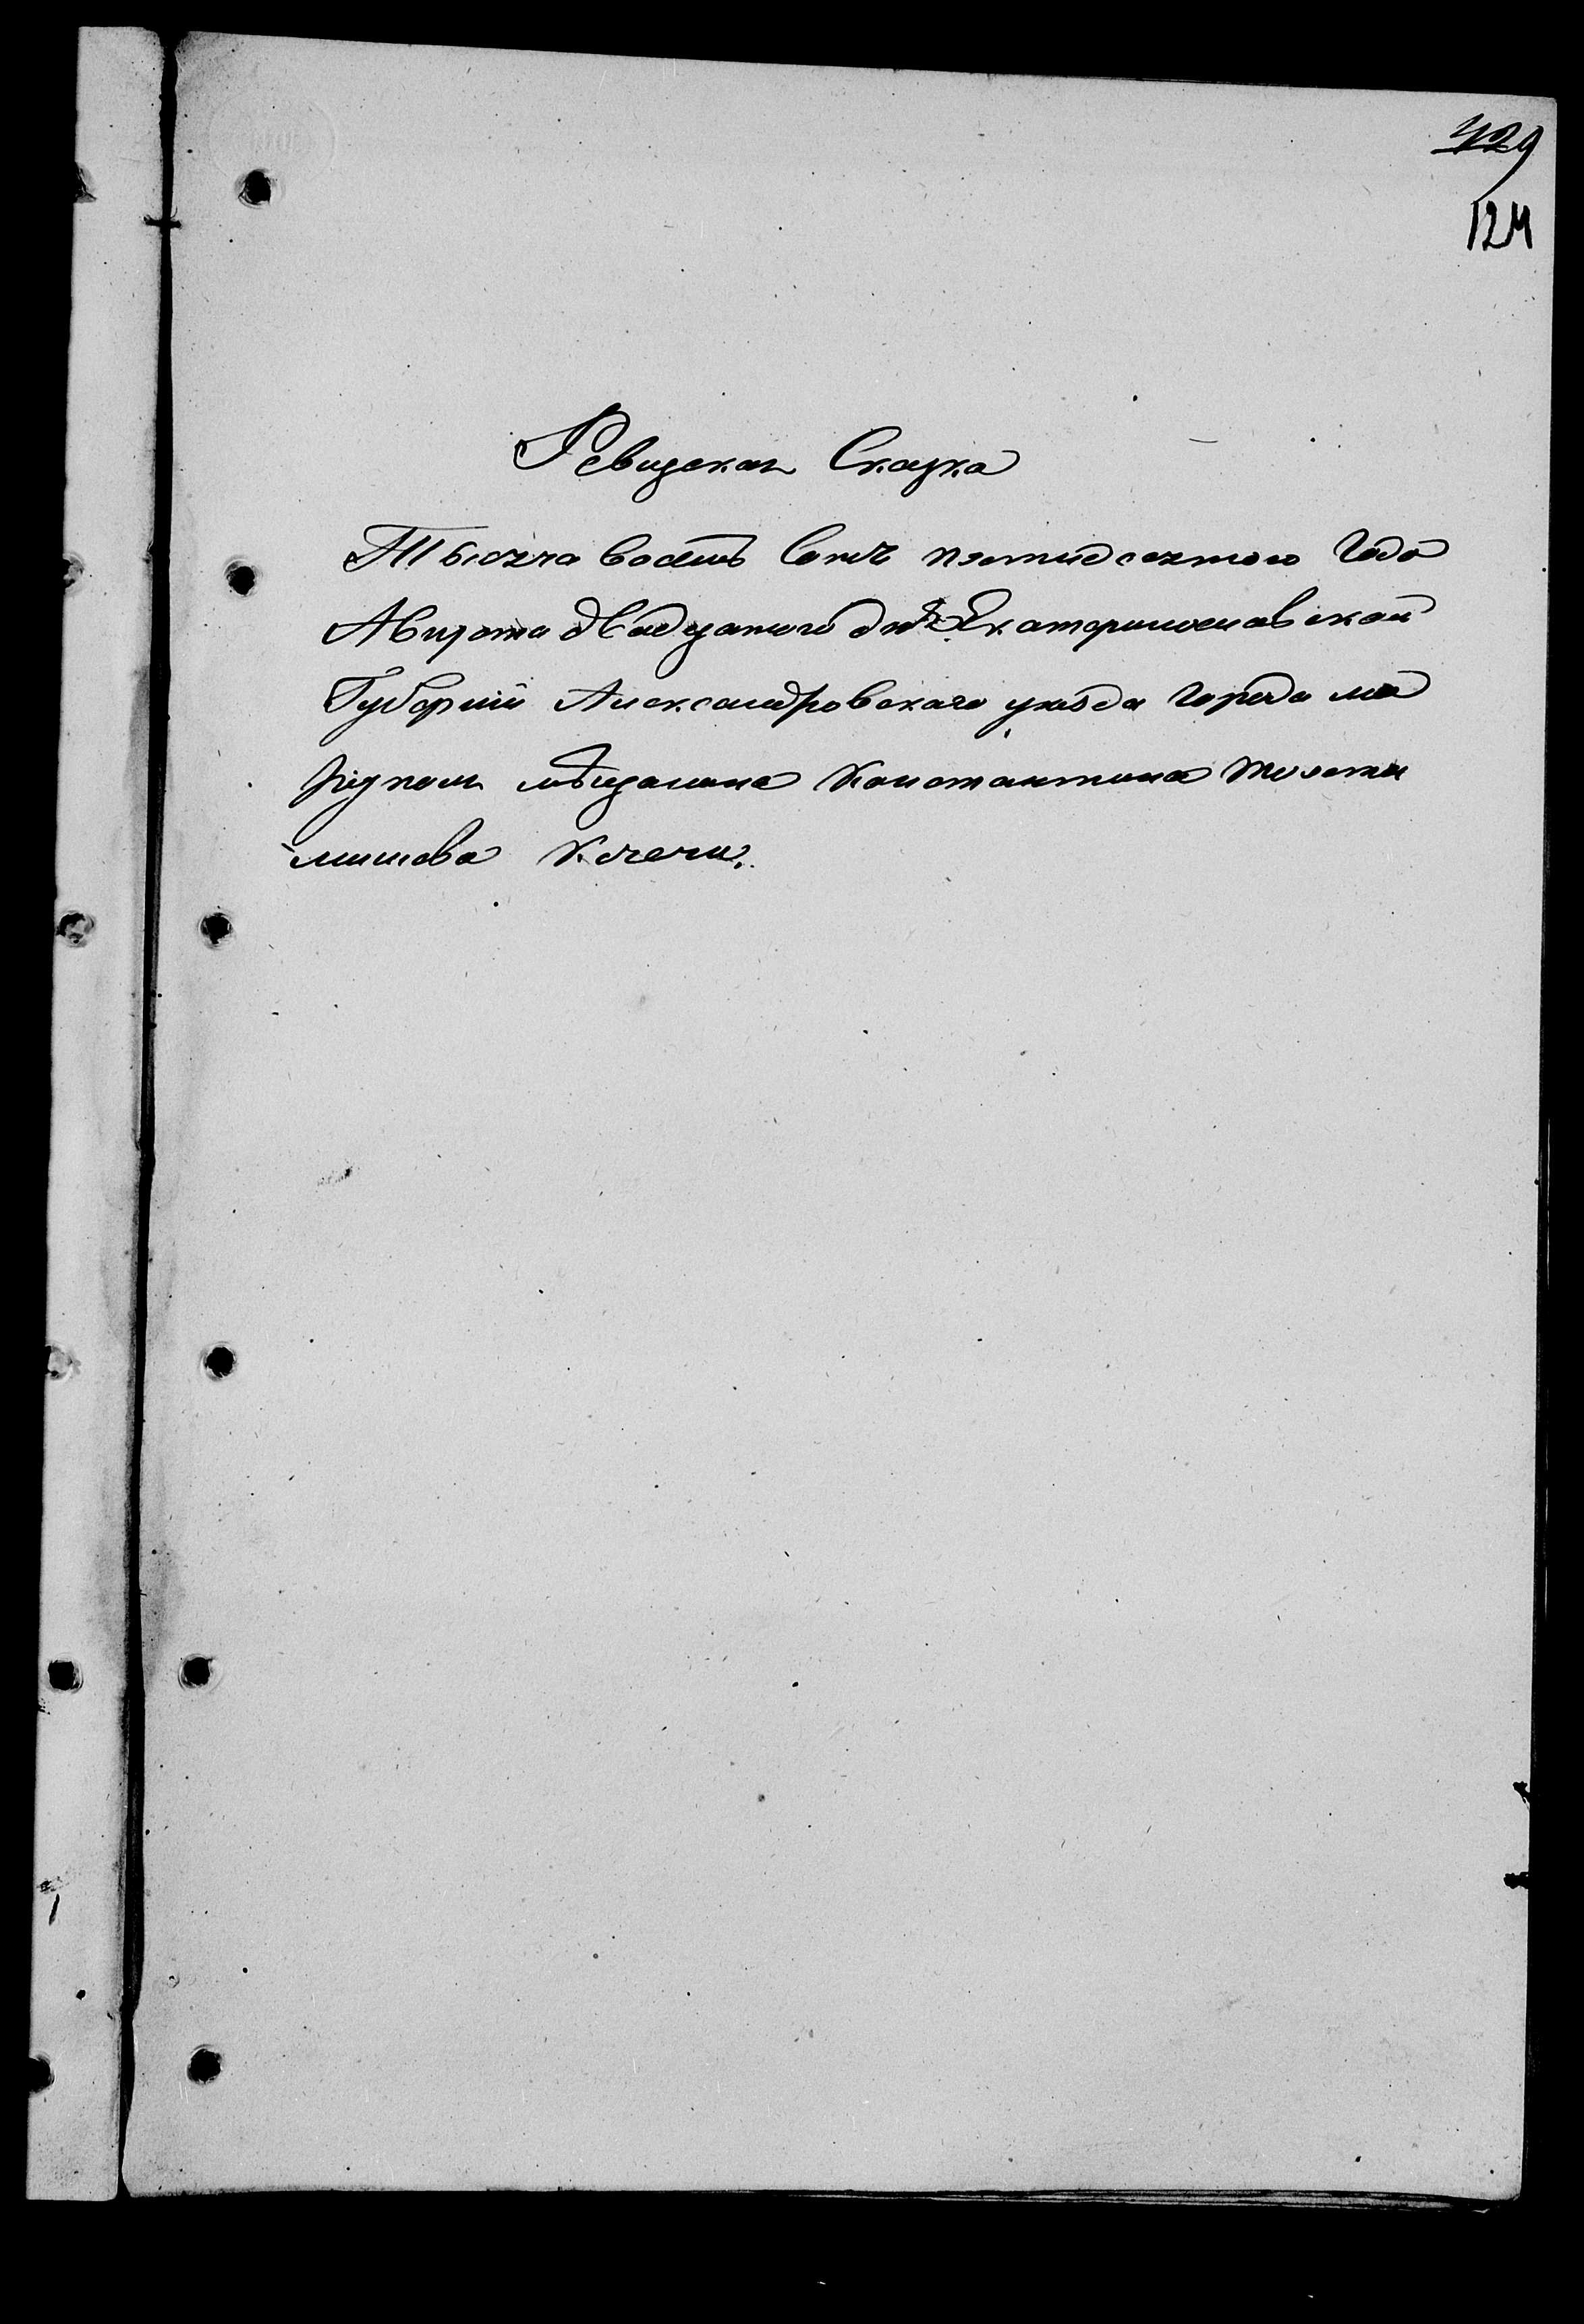 429
124
Ревизская Сказка
Тысяча восемь сотъ пятидесятого Года
Августа двадцатого дня Екатеринославской
Губерніи Александровскаго уѣзда города Ма
ріуполя мѣщанина Константина